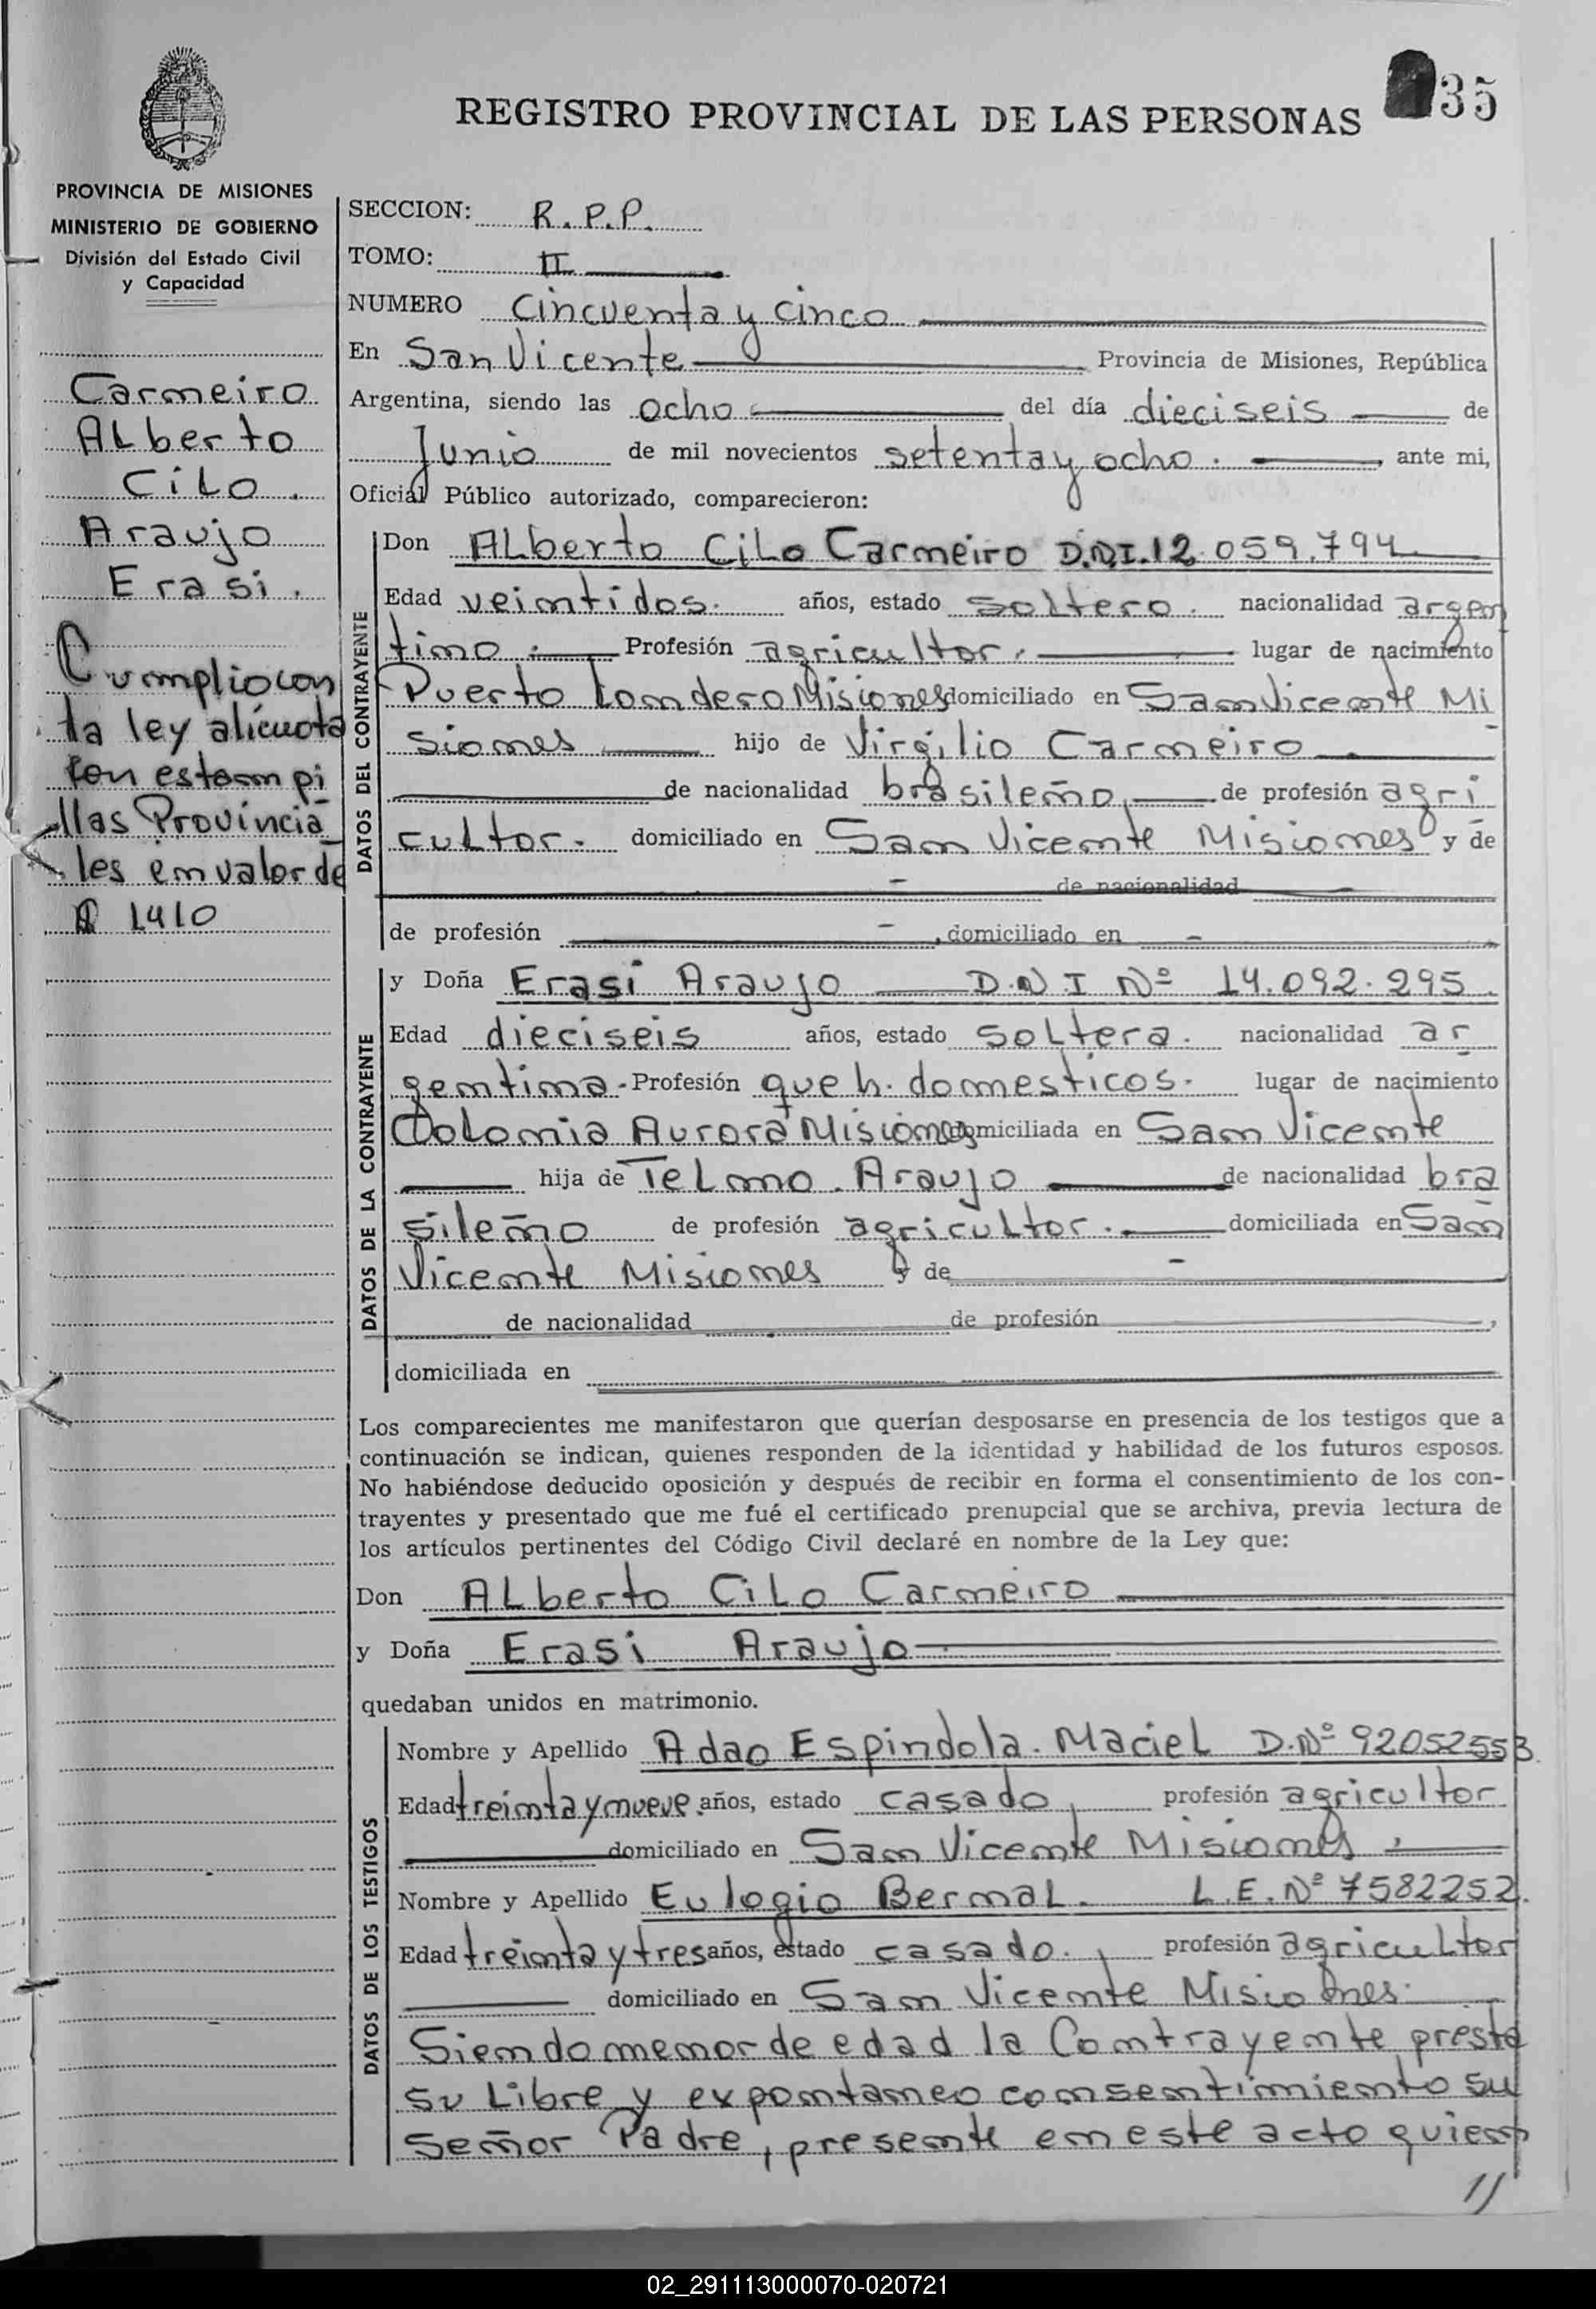 35
REGISTRO PROVINCIAL DE LAS PERSONAS
PROVINCIA DE MISIONES
MINISTERIO DE GOBIERNO
División del Estado Civil
y Capacidad
Carmeiro
ALberto
CiLo.
Araujo
Erasi.
Cumplio con
la ley alícuota
con estampi
llas Provincia
les en valor de
1410
SECCION: R.P.P.
TOMO: II
NUMERO Cincuenta y cinco
En San Vicente Provincia de Misiones, República
Argentina, siendo las ocho del día dieciseis de
Junio de mil novecientos setenta y ocho. ante mi,
Oficial Público autorizado, comparecieron:
DATOS DEL CONTRAYENTE
Don ALberto CiLo Carmeiro D.N.I. 12.059.794
Edad veintidos. años, estado soltero. nacionalidad argen
tino. Profesión agricultor. lugar de nacimiento
Puerto Londero Misiones domiciliado en San Vicente Mi
siones hijo de Virgilio Carmeiro
de nacionalidad brasileño, de profesión agri
cultor. domiciliado en San Vicente Misiones y de
de nacionalidad
de profesión , domiciliado en
DATOS DE LA CONTRAYENTE
y Doña Erasi Araujo D.N I Nº 14.092.295.
Edad dieciseis años, estado soltera. nacionalidad ar
gentina. Profesión que h. domesticos. lugar de nacimiento
Colonia Aurora Misiones domiciliada en San Vicente
hija de Telmo. Araujo de nacionalidad bra
sileño de profesión agricultor. domiciliada en San
Vicente Misiones y de
de nacionalidad de profesión ,
domiciliada en
Los comparecientes me manifestaron que querían desposarse en presencia de los testigos que a
continuación se indican, quienes responden de la identidad y habilidad de los futuros esposos.
No habiéndose deducido oposición y después de recibir en forma el consentimiento de los con-
trayentes y presentado que me fué el certificado prenupcial que se archiva, previa lectura de
los artículos pertinentes del Código Civil declaré en nombre de la Ley que:
Don ALberto CiLo Carmeiro
y Doña Erasi Araujo
quedaban unidos en matrimonio.
DATOS DE LOS TESTIGOS
Nombre y Apellido Adao Espindola. Maciel D.Nº 92052553
Edad treinta y nueve. años, estado casado, profesión agricultor
domiciliado en San Vicente Misiones.
Nombre y Apellido Eulogio Bernal. L.E.Nº 7582252.
Edad treinta y tres años, estado casado., profesión agricultor
domiciliado en San Vicente Misiones.
Siendo menor de edad la Contrayente presta
su Libre y expontaneo consentimiento su
Señor Padre, presente en este acto quien
//
02_291113000070-020721